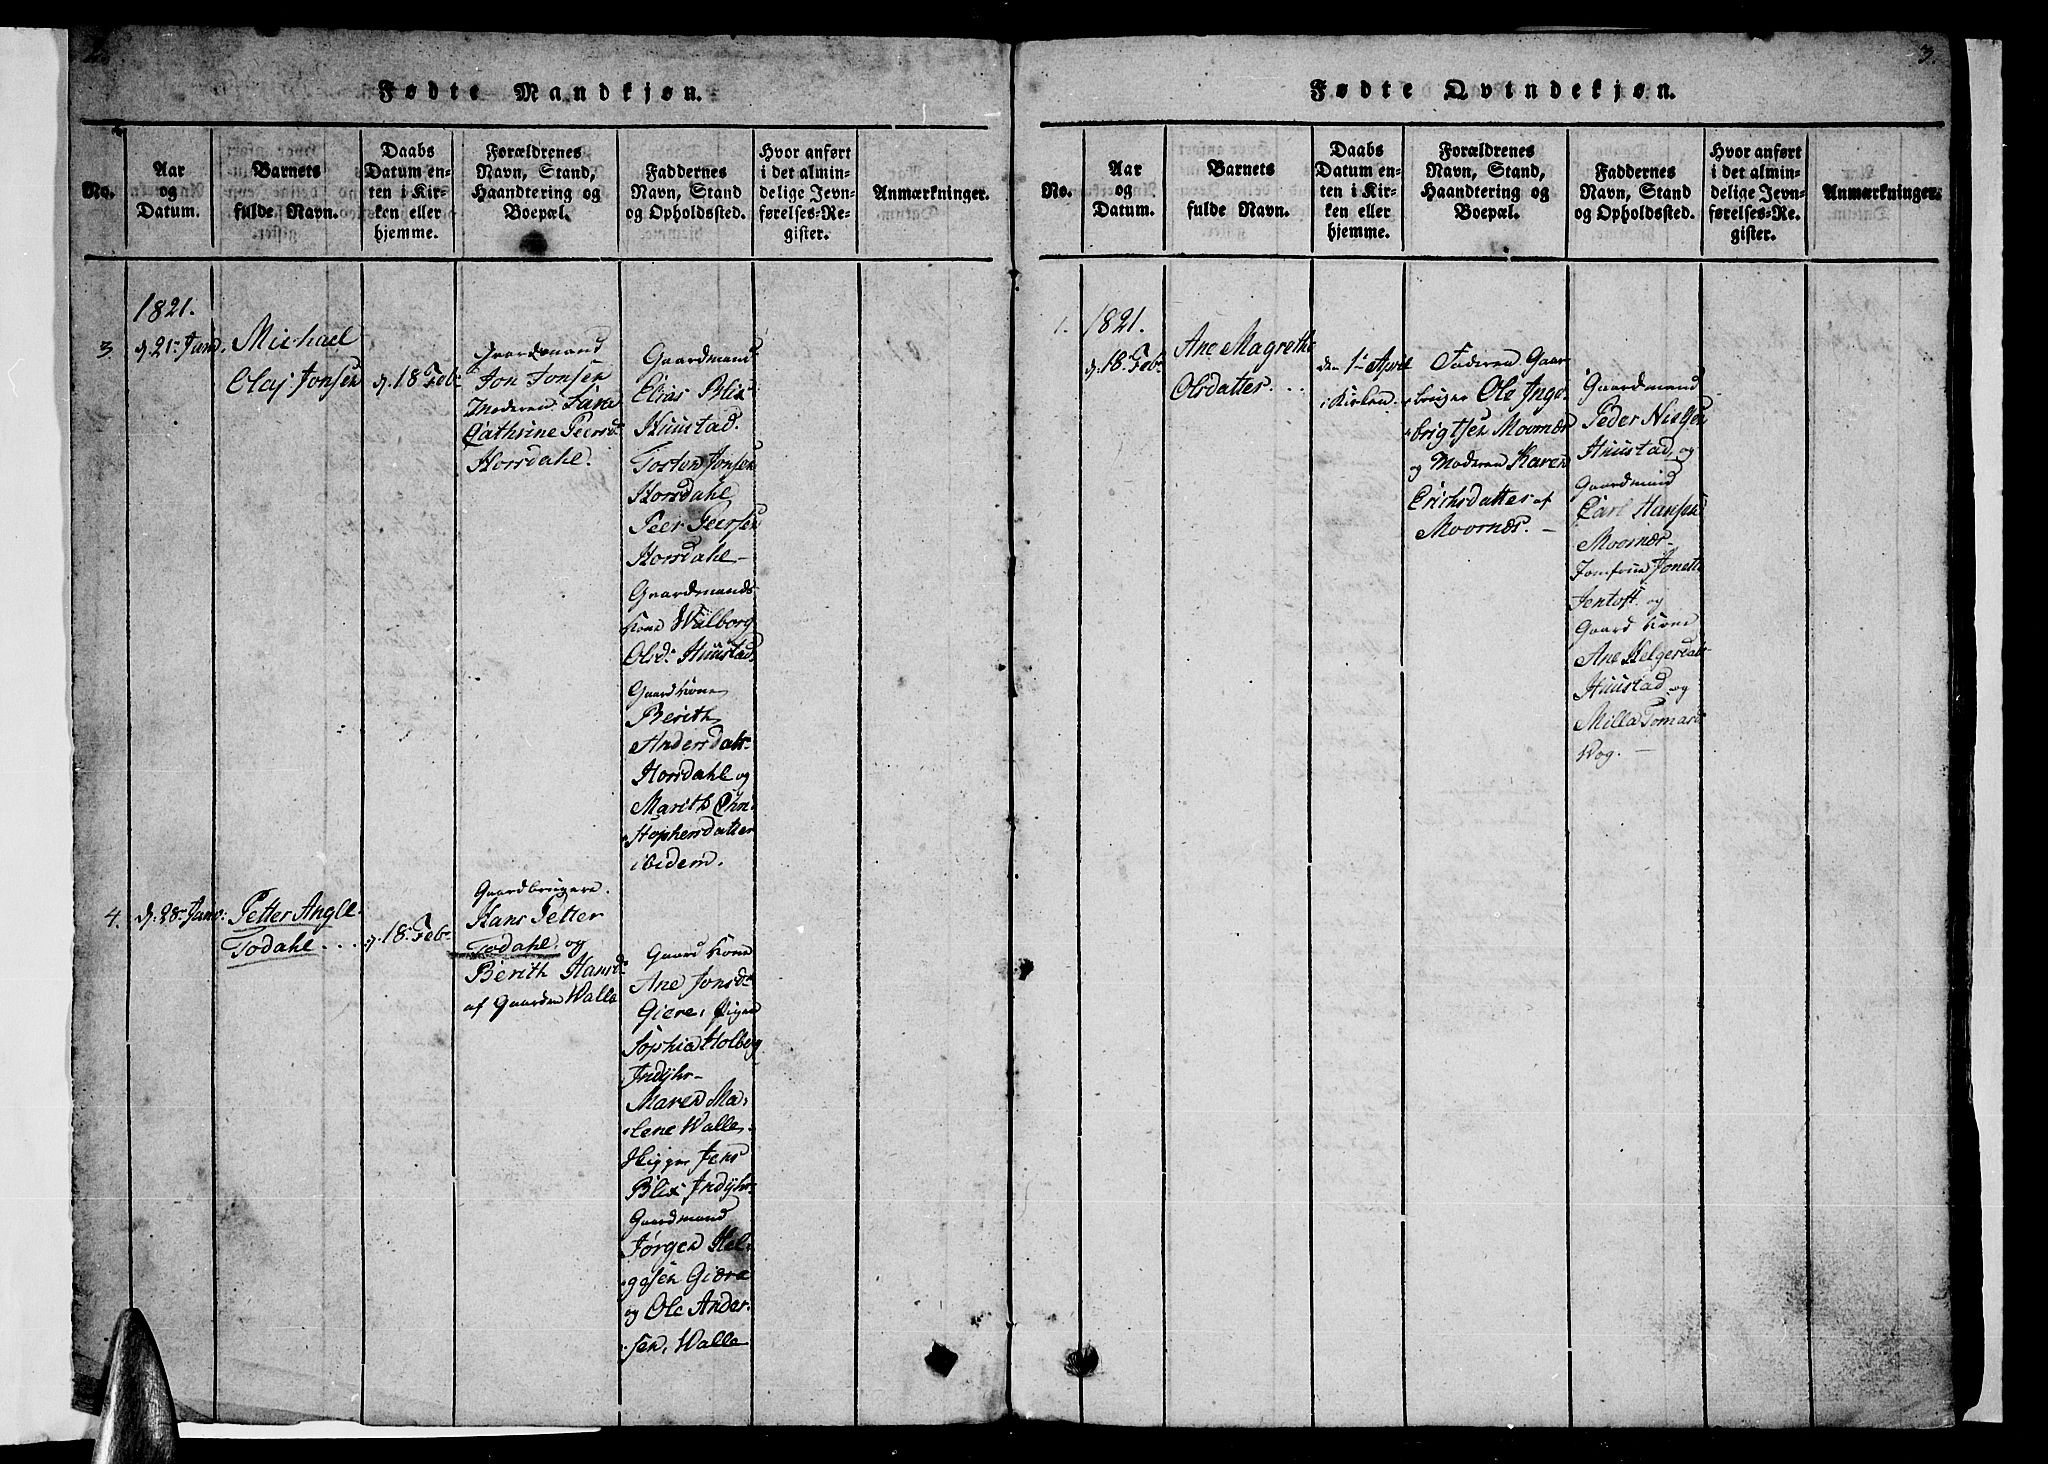 Fødte Mandkjøn.
No.
Aar
og
Datum.
Barnets
fulde Navn.
Daabs
Datum en-
ten i Kir-
ken eller
hjemme.
Forældrenes
Navn, Stand,
Haandtering og
Boepæl.
Faddernes
Navn, Stand
og Opholdssted.
Hvor anført
i det almin-
delige Jevn-
førelses-Re-
gister.
Anmærkninger.
1821.
3.
d. 21. Janr.
Michael
Olaj Jonsen
d. 18 Feb.
Gaardmand
Jon Jonsen
Moderen Sara
Cathrine Peersdr
Horsdahl.
Gaardmand
Elias Blix
Huustad.
Torsten Jonsen
Horsdahl
Peer Peersen
Horsdahl –
Gaardmands
Kone Walborg
Olsdr Huustad
Gaard Kone
Berith
Andersdatr
Horsdahl og
Marith Chri-
stophersdatter
ibidem.
4.
d. 28. Janr.
Petter Angel
Todahl ...
d. 18. Feb.
Gaardbrugere
Hans Petter
Todahl, og
Berith Hansdr
af Gaarden Walle
Gaard Kone
Ane Jonsdr
Giere, Pigen
Sophia Holberg
Indyhr –
Maren Ma-
lene Walle.
Skipper Jens
Blix Indyhr
Gaardmand
Jørgen Hel-
gesen Giære
og Ole Ander-
sen, Walle
3.
Fødte Qvindekjøn.
No.
Aar
og
Datum.
Barnets
fulde Navn.
Daabs
Datum en-
ten i Kir-
ken eller
hjemme.
Forældrenes
Navn, Stand,
Haandtering og
Boepæl.
Faddernes
Navn, Stand
og Opholdssted.
Hvor anført
i det almin-
delige Jevn-
førelses-Re-
gister.
Anmærkninger.
1.
1821.
d. 18. Feb.
Ane Magrethe
Olsdatter. ...
den 1. April
i Kirken.
Faderen Gaar
bruger Ole Inge-
brigtsen Moornær
og Moderen Karen
Erichsdatter af
Moornær. –
Gaardmand
Peder Nielsen
Huustad, og
Gaardmand
Carl Hansen
Moornær
Jomfrue Jonette
Jentoft. og
Gaard Kone
Ane Helgesdatr
Huustad. og
Milla Tomasd
Wog. –